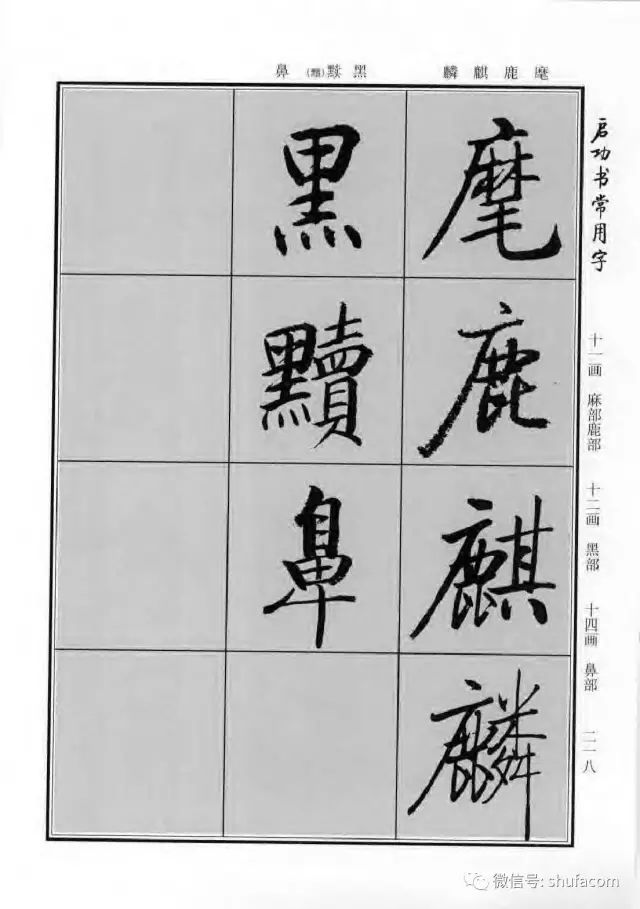 麾鹿麒麟　黑黩(黷)　鼻
启功书常用字
十一画　麻部鹿部　十二画　黑部　十四画　鼻部　二一八
麾
鹿
麒
麟
黑
黷
鼻
微信号: shufacom